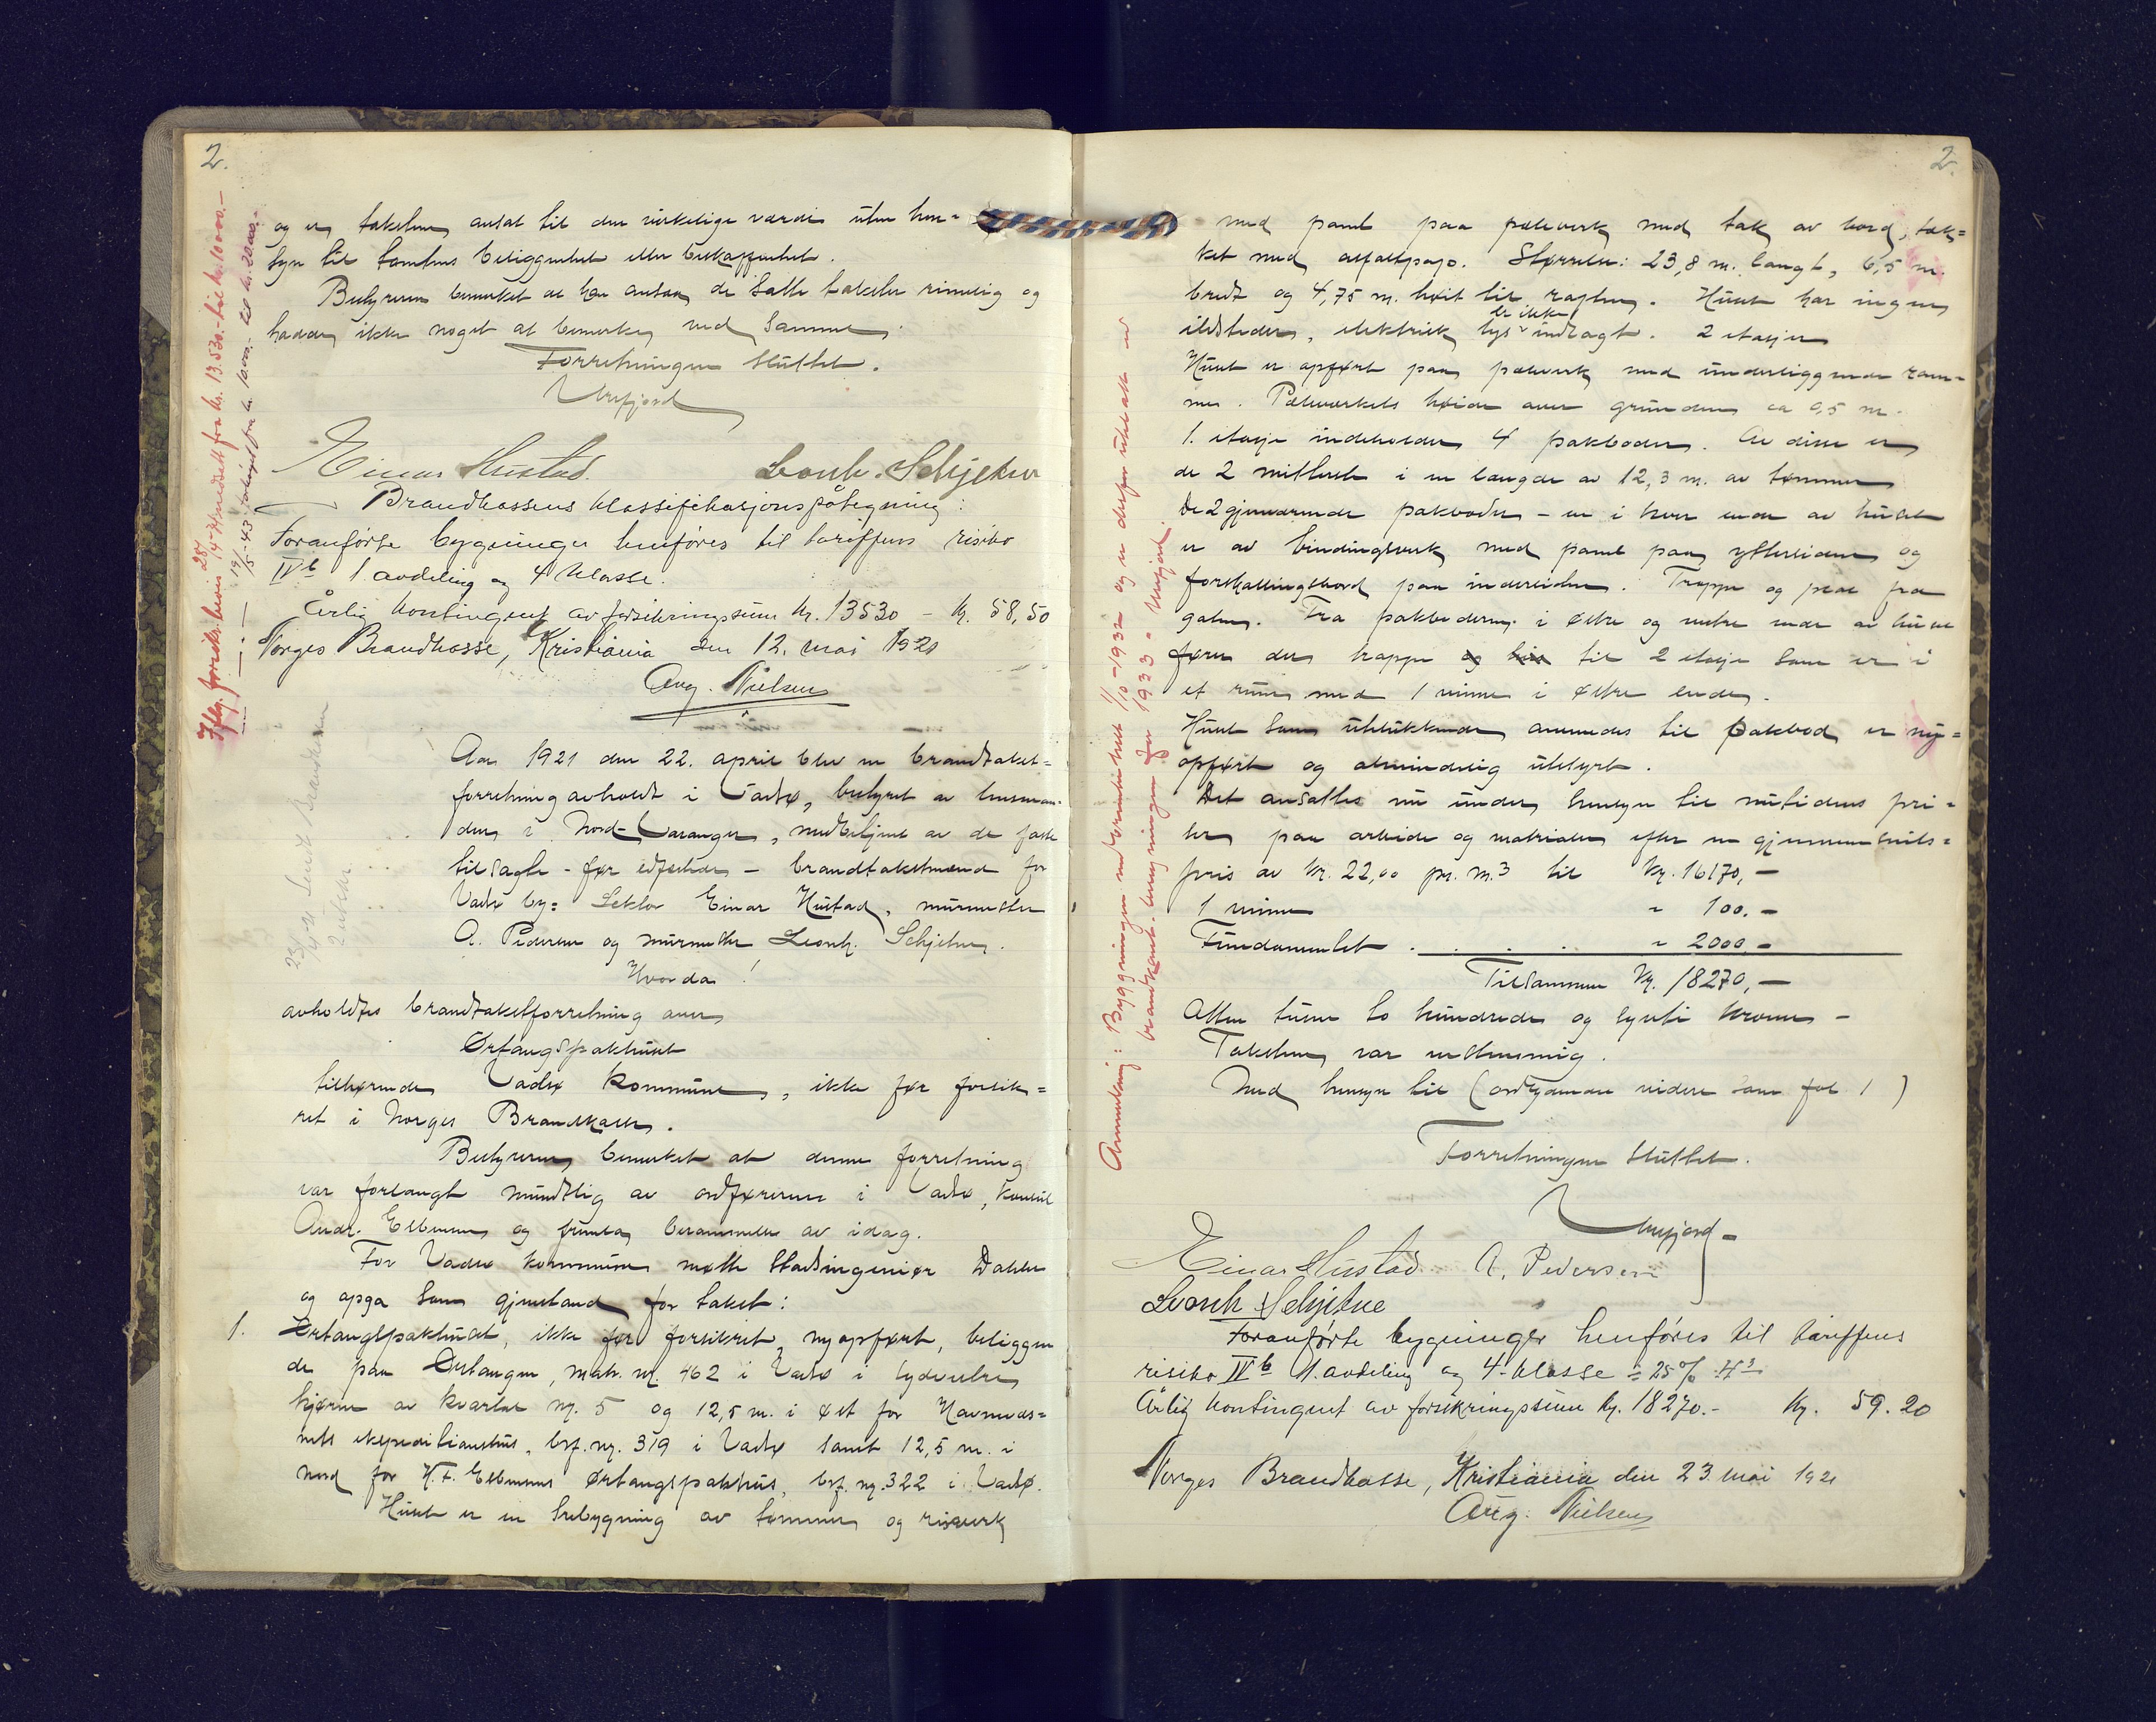 2.
og er taksten ansat til den virkelige værdi uten hen=
syn til tomtens beliggenhet eller beskaffenhet.
Bestyreren bemerket at han ansaa de satte takster rimelig og
hadde ikke noget at bemerke ved samme.
Forretningen sluttet.
Urefjord
Einar Hustad. Leonh. Schjetne
Brandkassens klassifikasjonspåtegning:
Foranførte bygninger henføres til tariffens risiko
IVb 1 avdeling og 4 klasse.
Årlig kontingent av forsikringssum kr. 13530 – kr. 58,50
Norges Brandkasse, Kristiania den 12. mai 1921
Aug. Nielsen
Aar 1921 den 22. april blev en brandtakst=
forretning avholdt i Vadsø, bestyret av lensman-
den i Nord-Varanger, medbetjent av de faste
tilsagte - før edfæstede - brandtakstmænd for
Vadsø by: Lektor Einar Hustad, murmester
A. Pedersen og murmester Leonh. Schjetne.
Hvorda!
avholdtes brandtakstforretning over
Ørtangspakhuset
tilhørende Vadsø kommune, ikke før forsik=
ret i Norges Brandkasse.
Bestyreren bemerket at denne forretning
var forlangt mundtlig av ordføreren i Vadsø, konsul
Andr. Esbensen og foretas berammelse av idag.
For Vadsø kommune møtte Stadsingeniør Dahle
og opga som gjenstand for takst:
1. Ørtangspakhuset, ikke før forsikret, nyopført, beliggen
de paa Ørtangen, matr. nr. 462 i Vadsø i sydvestre
hjørne av kvartal nr. 5 og 12,5 m. i øst for Havnevæs=
nets ekspeditionshus, brf. nr. 319 i Vadsø samt 12,5 m. i
nord for H. F. Esbensens Ørtangspakhus, brf. nr. 322 i Vadsø.
Huset er en trebygning av tømmer og reisverk
Iflg. forsikr.bevis 28/4-24 nedsatt fra kr. 13.530.- til kr. 10000.-
19/5-43 forhøyet fra kr. 10000.- til kr. 20.000.-
2.
med panel paa pæleverk med tak av bord, tæk=
ket med asfaltpap. Størrelse: 23,8 m. langt, 6,5 m.
bredt og 4,75 m. høit til raften. Huset har ingen
ildsteder, elektrisk lys er ikke indlagt. 2 etasjer
Huset er opført paa pæleverk med underliggende ram=
mer. Pæleverkets høide over grunden ca 0,5 m.
1. etasje indeholder 4 pakboder. Av disse er
de 2 midterste i en længde av 12,3 m. av tømmer
De 2 gjenværende pakboder - en i hver ende av huset
er av bindingsverk med panel paa yttersiden og
forskallingsbord paa indersiden. Trappe og port fra
gaten. Fra pakboderne i østre og vestre ende av huset
fører der trappe til 2 etasje som er i
et rum med 1 vinne i østre ende.
Huset som utelukkende anvendes til pakbod er ny=
opført og almindelig utstyrt.
Det ansattes nu under hensyn til nutidens pri=
ser paa arbeide og materialer efter en gjennemsnits=
pris av kr. 22,00 pr. m.3 til kr. 16170,-
1 vinne " 100.-
Fundamentet . . . . " 2000.-
Tilsammen kr. 18270,-
Atten tusen to hundrede og sytti kroner -
Taksten var enstemmig.
Med hensyn til (ordlydende videre som fol. 1)
Forretningen sluttet.
Urefjord
Einar Hustad A. Pedersen
Leonh Schjetne
Foranførte bygninger henføres til tariffens
risiko IVb 1. avdeling og 4. klasse ÷ 25%
Årlig kontingent av forsikringssum kr. 18270.- kr. 59.20
Norges Brandkasse, Kristiania den 23. mai 1921
Aug. Nielsen
Anmerkning: Bygningen nedbrendte helt 1/10-1932 og er derfor utelatt ved
brandkont. beregningen for 1933. Urefjord.